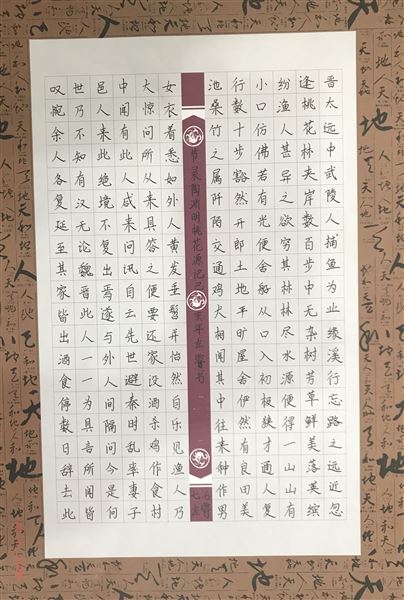 晋太远中武陵人捕鱼为业缘溪行忘路之远近忽
逢桃花林夹岸数百步中无杂树芳草鲜美落英缤
纷渔人甚异之欲穷其林林尽水源便得一山山有
小口仿佛若有光便舍船从口入初极狭才通人复
行数十步豁然开郎土地平旷屋舍伊然有良田美
池桑竹之属阡陌交通鸡犬相闻其中往来种作男
节录陶渊明桃花源记己亥年书
女衣着悉如外人黄发垂髫并怡然自乐见渔人乃
大惊问所从来具答之便要还家设酒杀鸡作食村
中闻有此人咸来问讯自云先世避秦时乱率妻子
邑人来此绝境不复出焉遂与外人间隔问今是何
世乃不知有汉无论魏晋此人一一为具言所闻皆
叹惋余人各复延至其家皆出酒食停数日辞去此